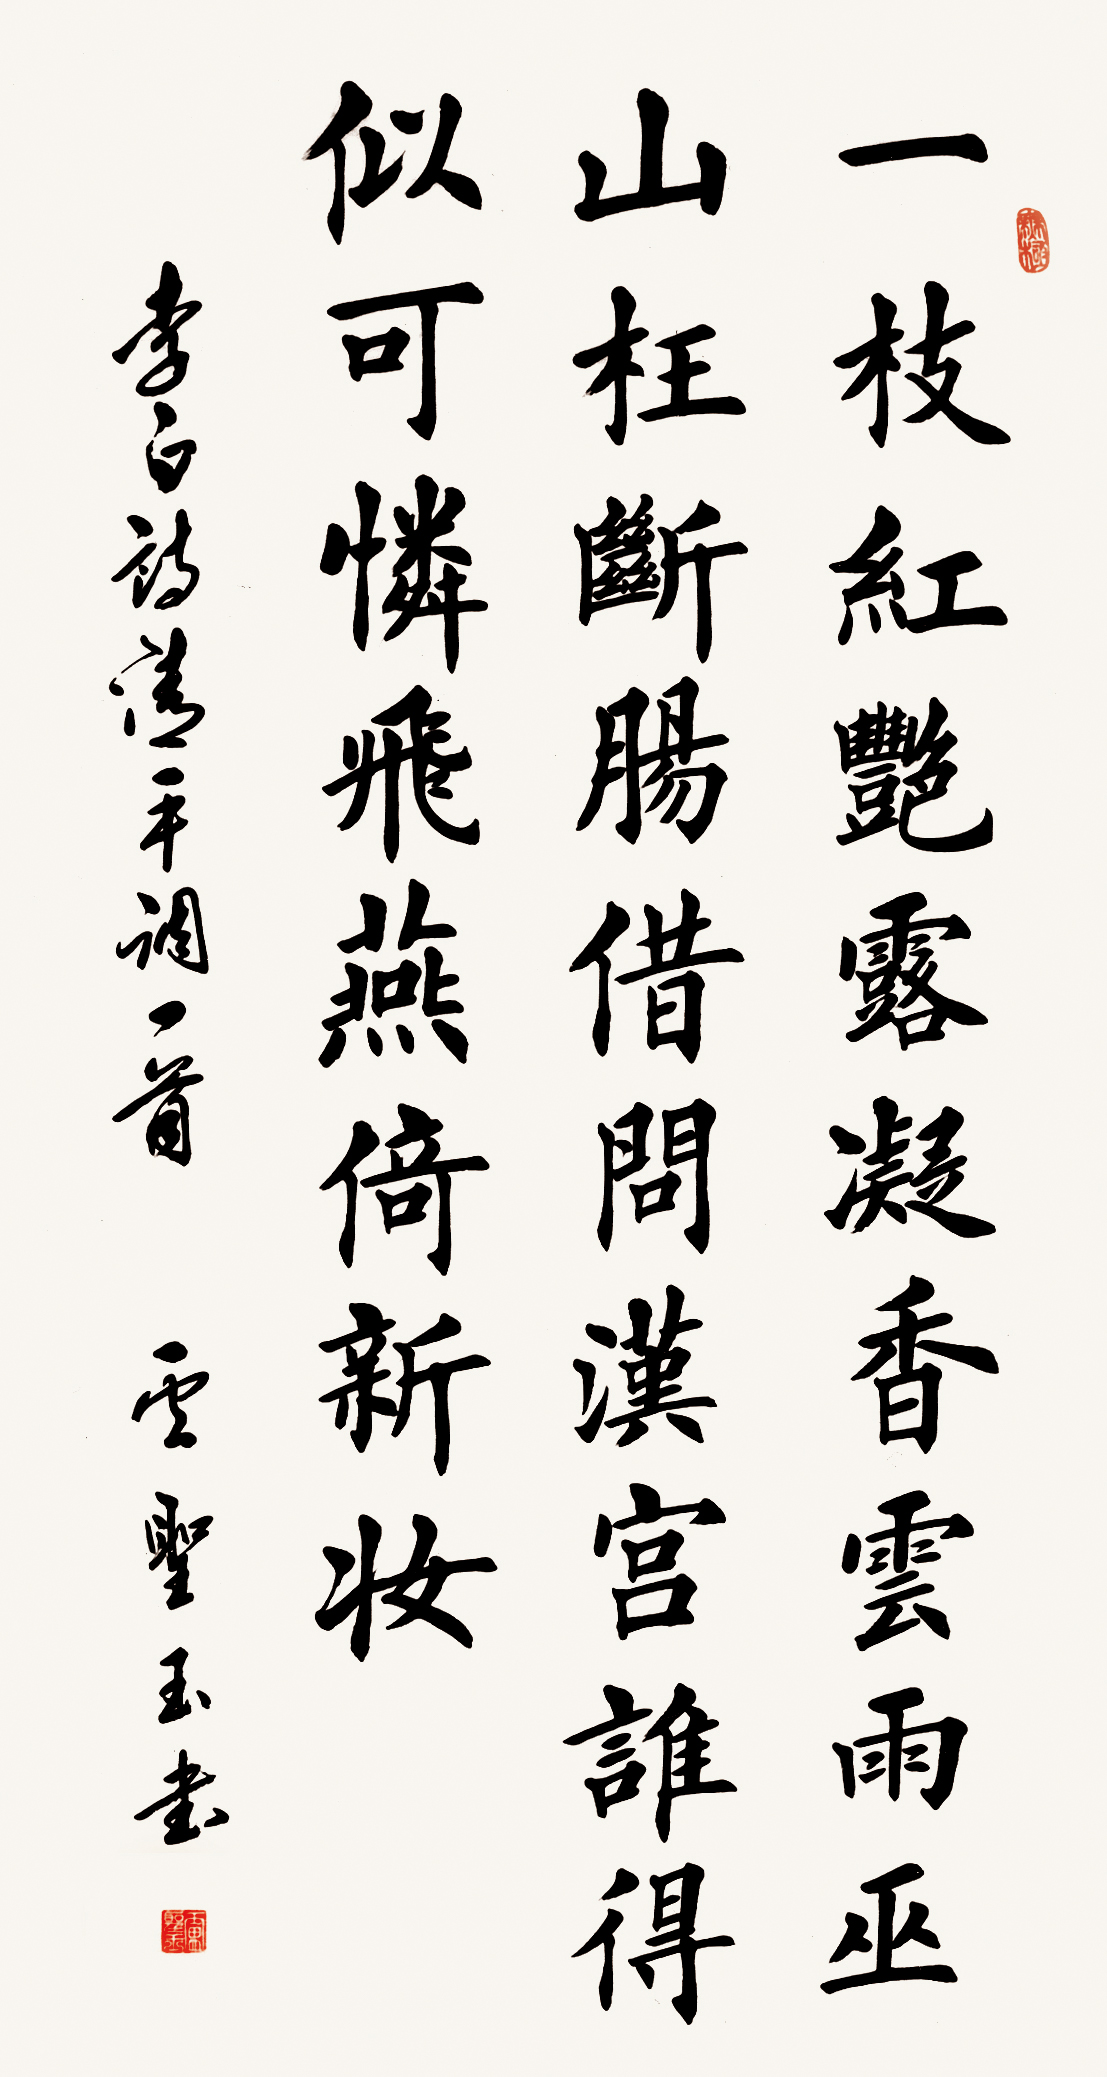 一枝紅艷露凝香雲雨巫
山枉斷腸借問漢宫誰得
似可憐飛燕倚新妝
李白詩清平調一首 雲聖玉书